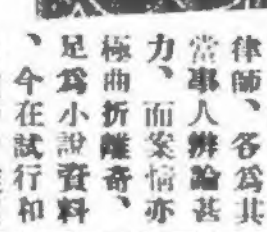 律師、各爲其
當事人辨論甚
力、而案情亦
極曲折離奇、
足爲小說資料
、今在試行和